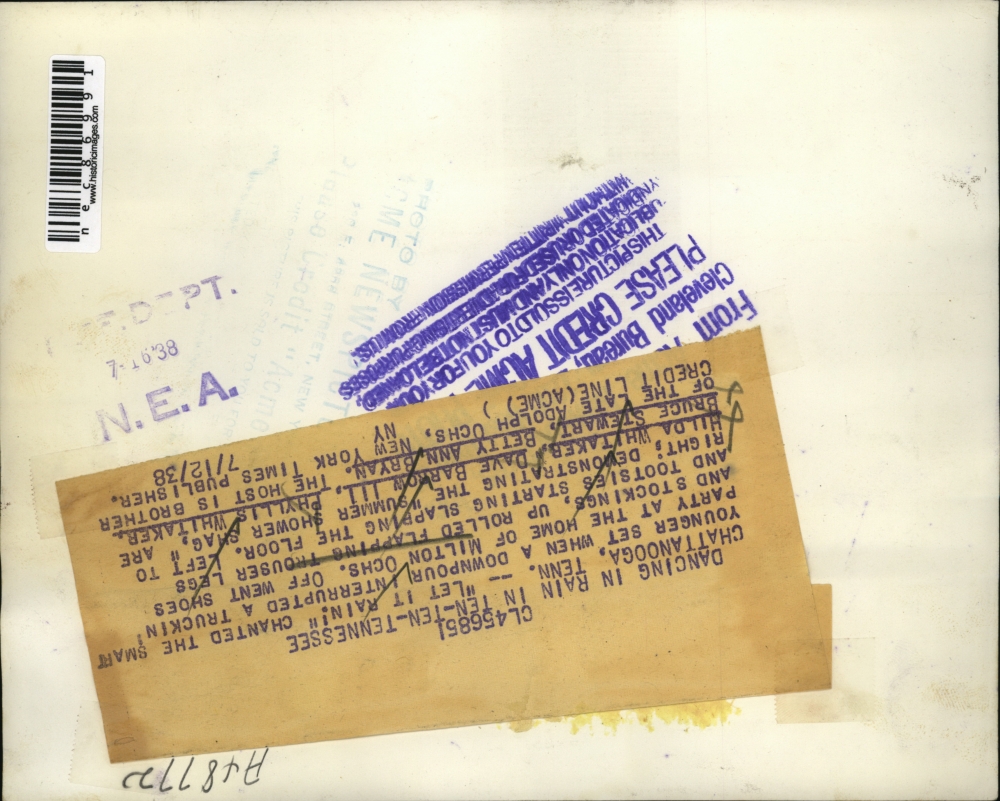 necc86991
www.historicimages.com
F. DEPT.
7-16'38
N.E.A.
PHOTO BY
ACME NEWSPICT
Please Credit "Acme
From
Cleveland Bureau
PLEASE CREDIT ACME
THIS PICTURE ISSUED TO YOU FOR YOUR
PUBLICATION ONLY AND MUST NOT BE LOANED
SYNDICATED OR USED FOR ADVERTISING PURPOSES
WITHOUT WRITTEN PERMISSION FROM ACME
CL456851
DANCING IN RAIN IN TEN-TEN-TENNESSEE
CHATTANOOGA, TENN. -- "LET IT RAIN!" CHANTED THE SMART
YOUNGER SET WHEN A DOWNPOUR INTERRUPTED A TRUCKIN'
PARTY AT THE HOME OF MILTON OCHS. OFF WENT SHOES
AND STOCKINGS, UP ROLLED FLAPPING TROUSER LEGS
AND TOOTSIES, STARTING SLAPPING THE FLOOR. LEFT TO
RIGHT, DEMONSTRATING THE "SUMMER SHOWER SHAG," ARE
HILDA WHITAKER, DAVE BARROW III, PHYLLIS WHITAKER,
BRUCE STEWART, BETTY ANN BRYAN. THE HOST IS BROTHER
OF THE LATE ADOLPH OCHS, NEW YORK TIMES PUBLISHER.
CREDIT LINE(ACME) NY 7/12/38
A487722